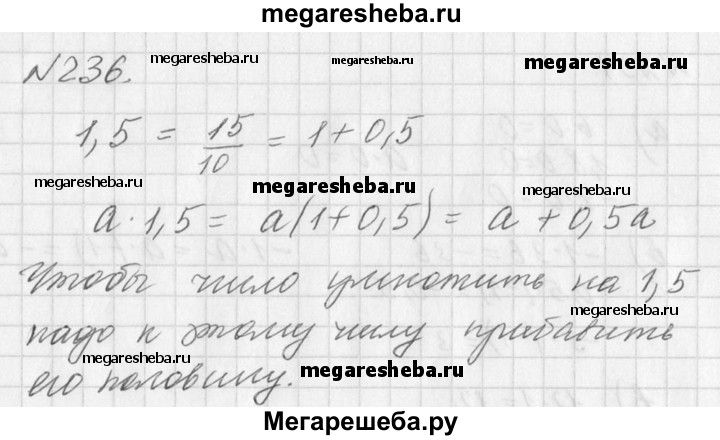 megaresheba.ru
№236.
megaresheba.ru megaresheba.ru
1,5 = 15/10 = 1 + 0,5
megaresheba.ru megaresheba.ru megaresheba.ru
a · 1,5 = a(1 + 0,5) = a + 0,5a
Чтобы число умножить на 1,5
megaresheba.ru
надо к этому числу прибавить
megaresheba.ru megaresheba.ru
его половину.
Мегарешеба.ру